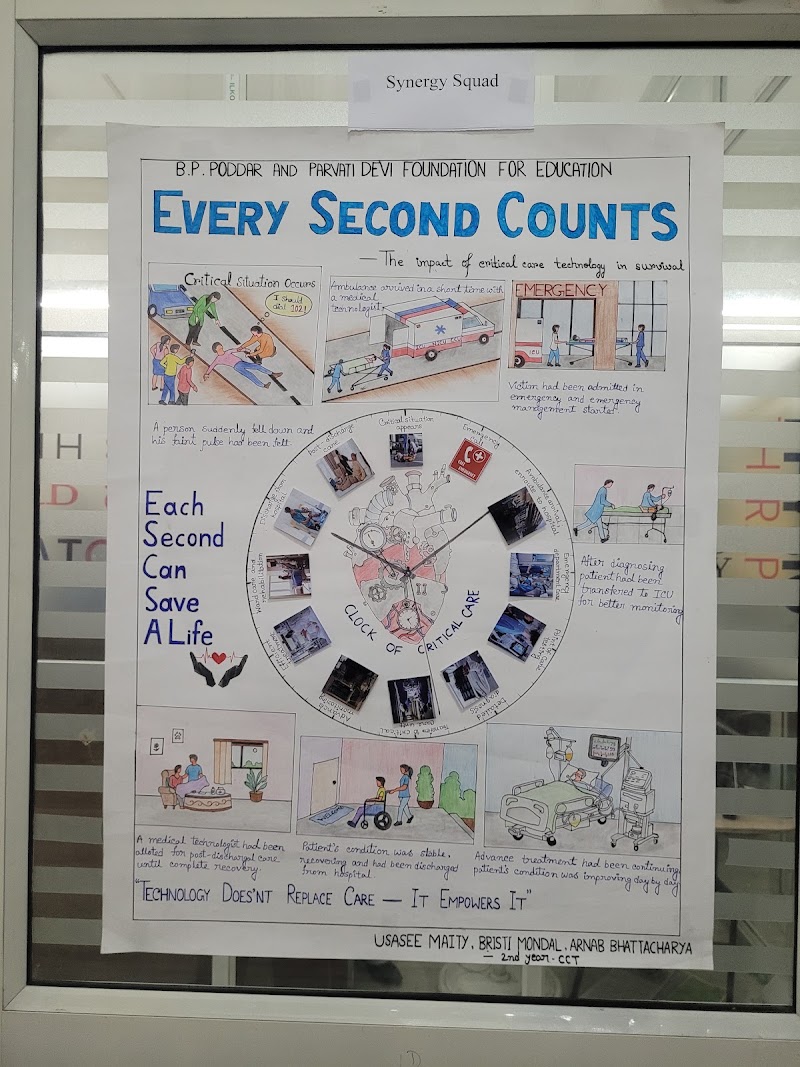 Synergy Squad
B.P. PODDAR AND PARVATI DEVI FOUNDATION FOR EDUCATION
EVERY SECOND COUNTS
— The impact of critical care technology in survival
Critical Situation Occurs
I should
dial 102!
A person suddenly fell down and
his faint pulse had been felt.
Ambulance arrived in a short time with
a medical
technologist
EMERGENCY
ICU
Victim had been admitted in
emergency and emergency
management started.
Critical situation
appears
Emergency
call
Ambulance arrival
Emergency
detailed
diagnosis
Transfer to critical
care unit
Advance
monitoring
treatment
Ward care and
rehabilitation
Discharge from
hospital
Post-discharge
care
CLOCK OF CRITICAL CARE
11
Each
Second
Can
Save
A Life
After diagnosing
patient had been
transferred to ICU
for better monitoring
A medical technologist had been
alloted for post-discharge care
until complete recovery.
Welcome
Patient's condition was stable,
recovering and had been discharged
from hospital
Advance treatment had been continuing,
patient's condition was improving day by day
"TECHNOLOGY DOES'NT REPLACE CARE — IT EMPOWERS IT"
USASEE MAITY, BRISTI MONDAL, ARNAB BHATTACHARYA
— 2nd year - CCT